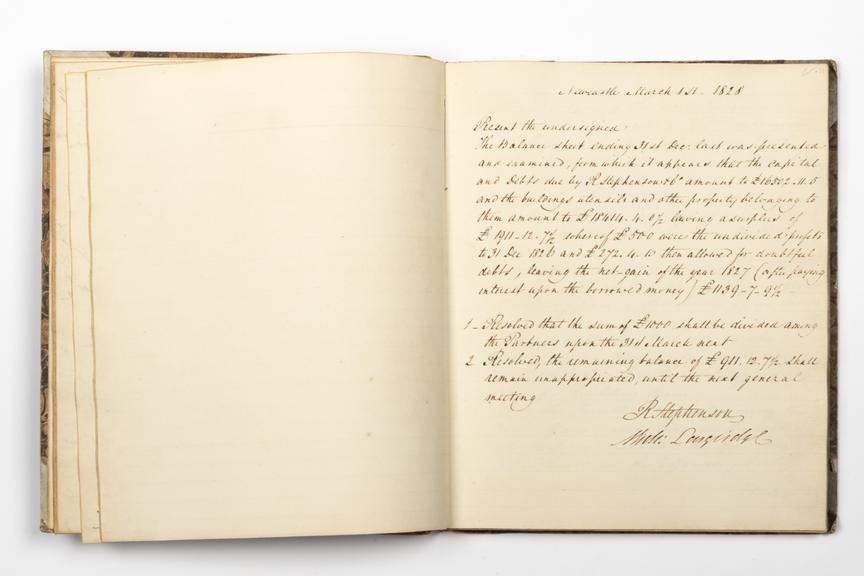 Newcastle March 1st 1828
Present the undersigned
The Balance sheet ending 31st Dec: last was presented
and examined, from which it appears that the capital
and Debts due by R Stephenson & Co amount to £16502..11..5
and the buildings utensils and other property belonging to
them amount to £18414..4..0½ leaving a surplus of
£1911-12-7½ whereof £500 were the undivided profits
to 31 Dec 1826 and £272..4..10 then allowed for doubtful
debts, leaving the net-gain of the year 1827 (after paying
interest upon the borrowed money) £1139-7-9½
1 - Resolved that the sum of £1000 shall be divided among
the Partners upon the 31st March next
2 Resolved, the remaining balance of £911..12..7½ shall
remain unappropriated, until the next general
meeting
R Stephenson
Longridge